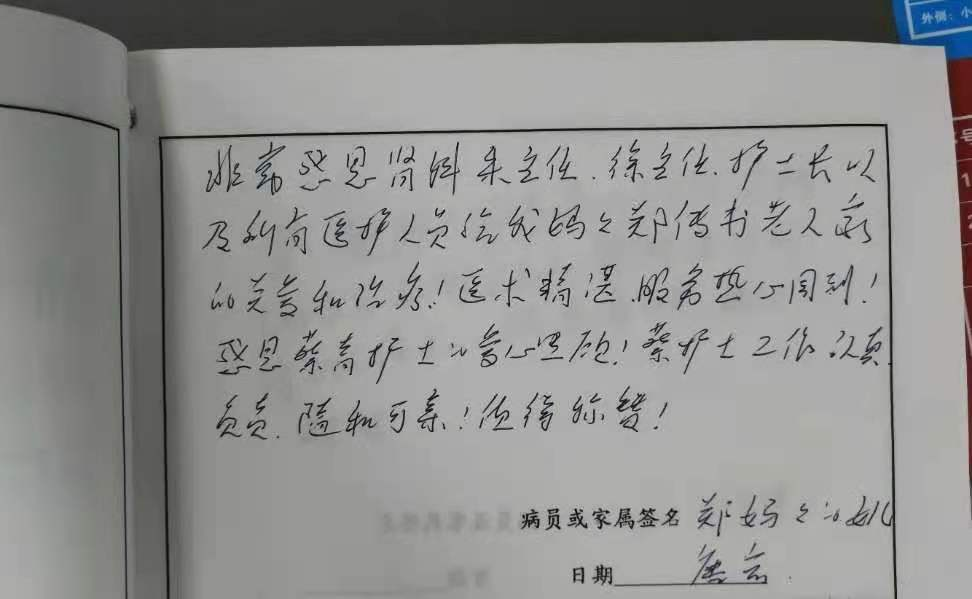 外侧：小
号
非常感恩肾科来主任、徐主任、护士长以
及所有医护人员给我妈妈郑传书老人家
的关爱和治疗！医术精湛、服务热心周到！
感恩蔡青护士的爱心照顾！蔡护士工作认真
负责、随和可亲！值得称赞！
病员或家属签名 郑妈妈的女儿
日期 唐云